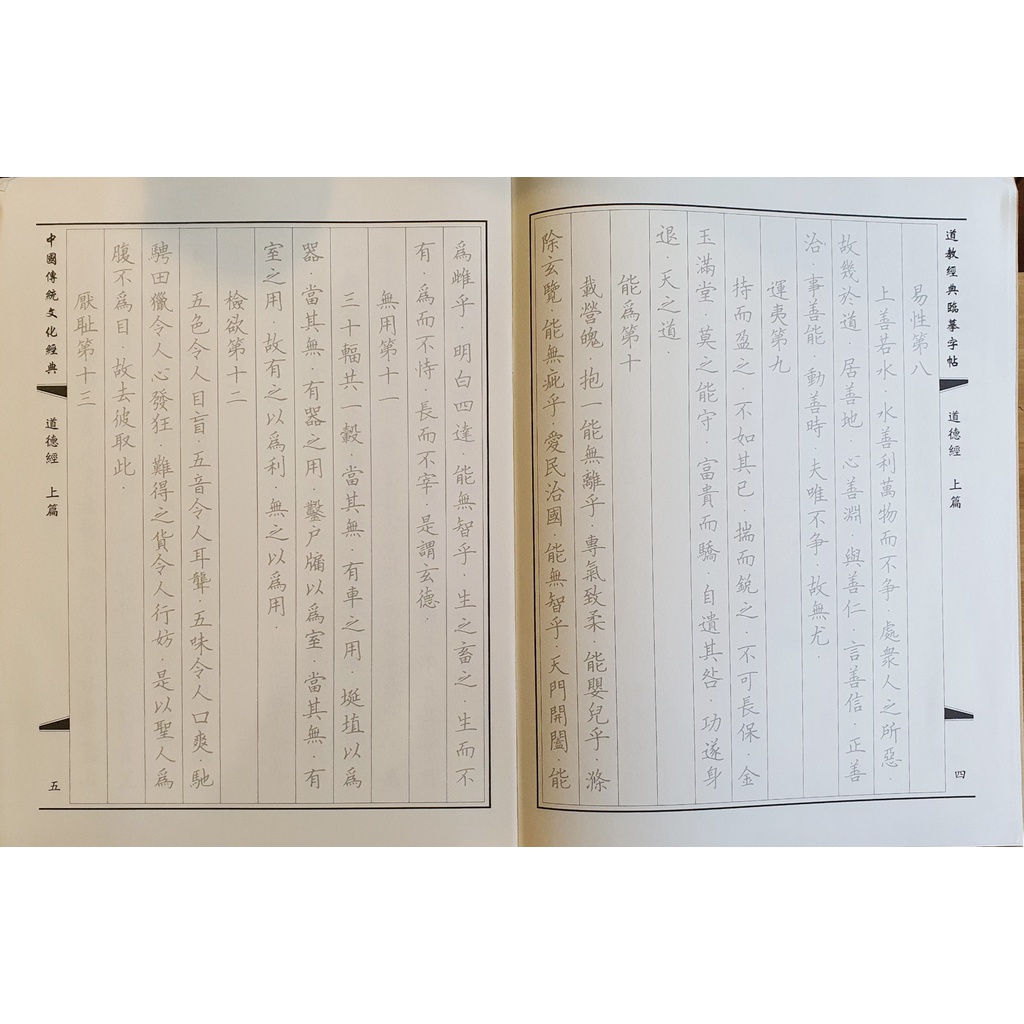 道教經典臨摹字帖
道德經 上篇
四
易性第八
上善若水．水善利萬物而不争．處衆人之所惡．
故幾於道．居善地．心善淵．與善仁．言善信．正善
治．事善能．動善時．夫唯不争．故無尤．
運夷第九
持而盈之．不如其已．揣而銳之．不可長保．金
玉滿堂．莫之能守．富貴而驕．自遺其咎．功遂身
退．天之道．
能爲第十
載營魄．抱一能無離乎．專氣致柔．能嬰兒乎．滌
除玄覽．能無疵乎．愛民治國．能無智乎．天門開闔．能
爲雌乎．明白四達．能無智乎．生之畜之．生而不
有．爲而不恃．長而不宰．是謂玄德．
無用第十一
三十輻共一轂．當其無．有車之用．埏埴以爲
器．當其無．有器之用．鑿户牖以爲室．當其無．有
室之用．故有之以爲利．無之以爲用．
檢欲第十二
五色令人目盲．五音令人耳聾．五味令人口爽．馳
騁田獵令人心發狂．難得之貨令人行妨．是以聖人爲
腹不爲目．故去彼取此．
厭耻第十三
中國傳統文化經典
道德經 上篇
五